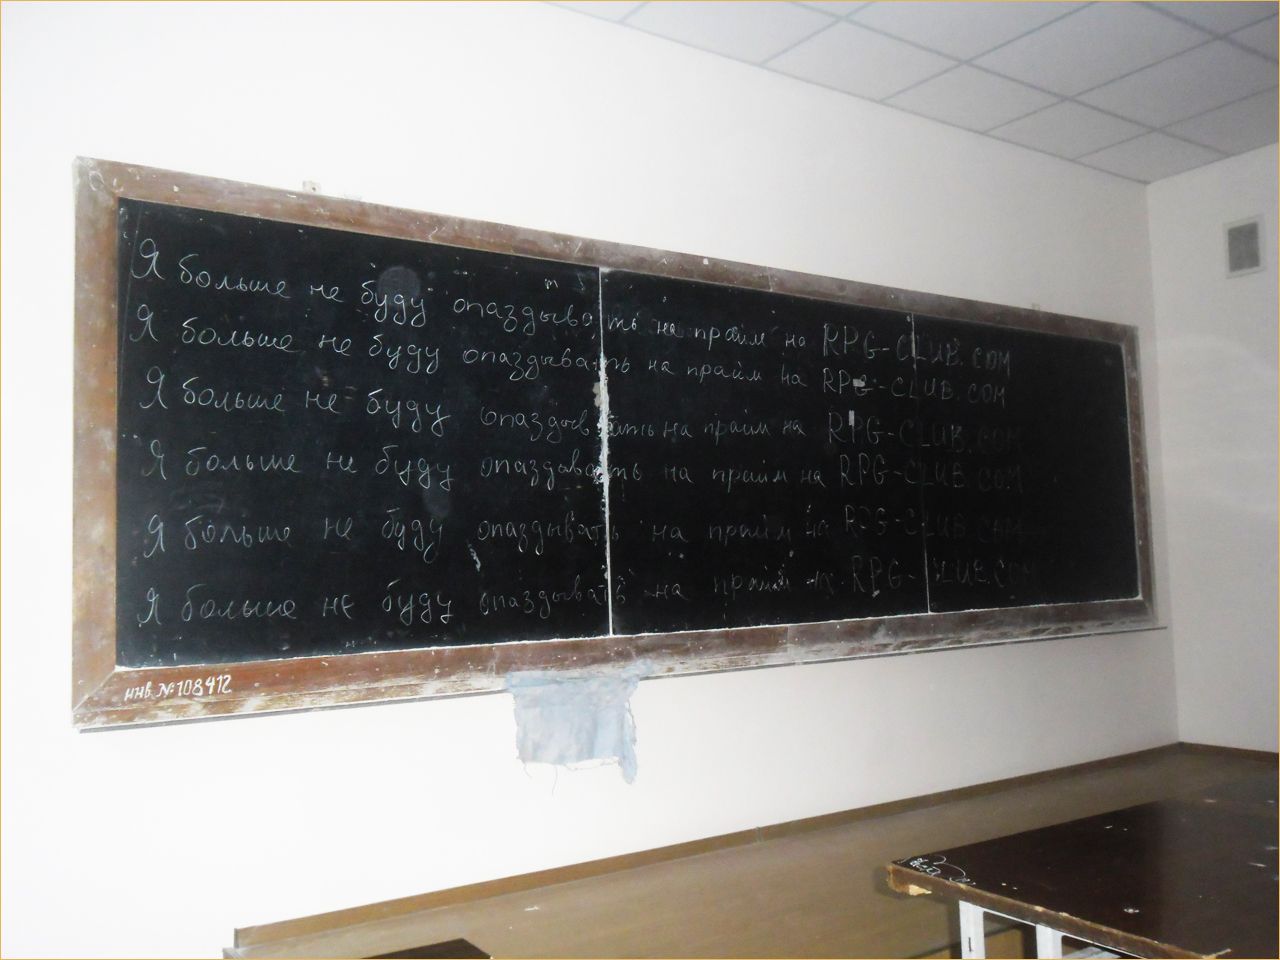 Я больше не буду опаздывать на прайм на RPG-CLUB.COM
Я больше не буду опаздывать на прайм на RPG-CLUB.COM
Я больше не буду опаздывать на прайм на RPG-CLUB.COM
Я больше не буду опаздывать на прайм на RPG-CLUB.COM
Я больше не буду опаздывать на прайм на RPG-CLUB.COM
Я больше не буду опаздывать на прайм на RPG-CLUB.COM
инв №108412